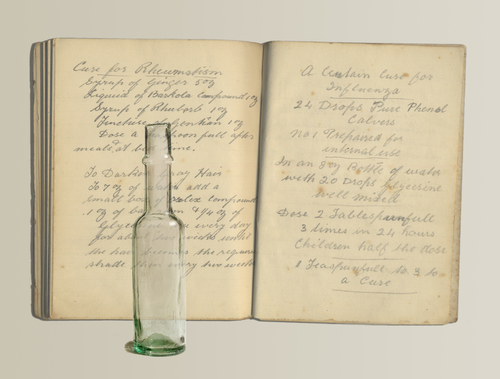 Cure for Rheumatism
Syrup of Ginger 5 oz
Liquid of Barkola Compound 1 oz
Syrup of Rhubarb 1 oz
Tincture Gentian 1 oz
Dose a full after
meals at time.
To Darken Gray Hair
To 7 oz of add a
small box of compound
1 oz of bay & 1/4 oz of
every day
for about two weeks until
the hair becomes the required
shade. Then every two weeks
A Certain Cure for
Influenza
24 Drops Pure Phenol
Calvers
No 1 Prepared for
internal use
In an 8 oz Bottle of water
with 20 Drops Glycerine
well mixed
Dose 2 Tablespunfull
3 times in 24 hours
Children half the dose
1 Teaspunfull to 3 to
a Cure